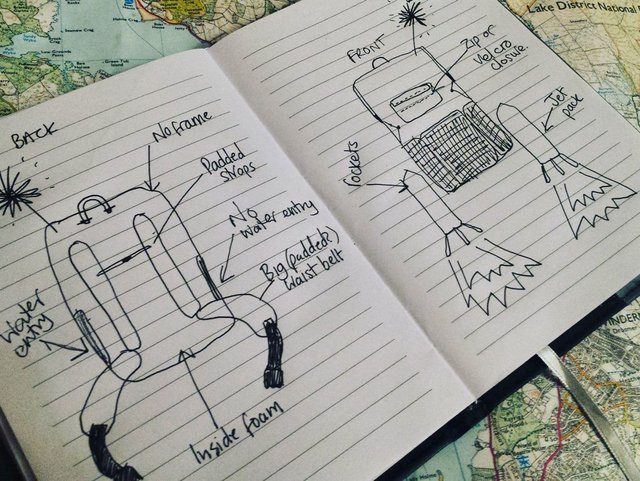 BACK
No frame
Padded
straps
No
water entry
Big (padded)
waist belt
Water
entry
Inside foam
FRONT
Zip or
velcro
closure
Jet
pack
rockets
Lake District National
WINDER